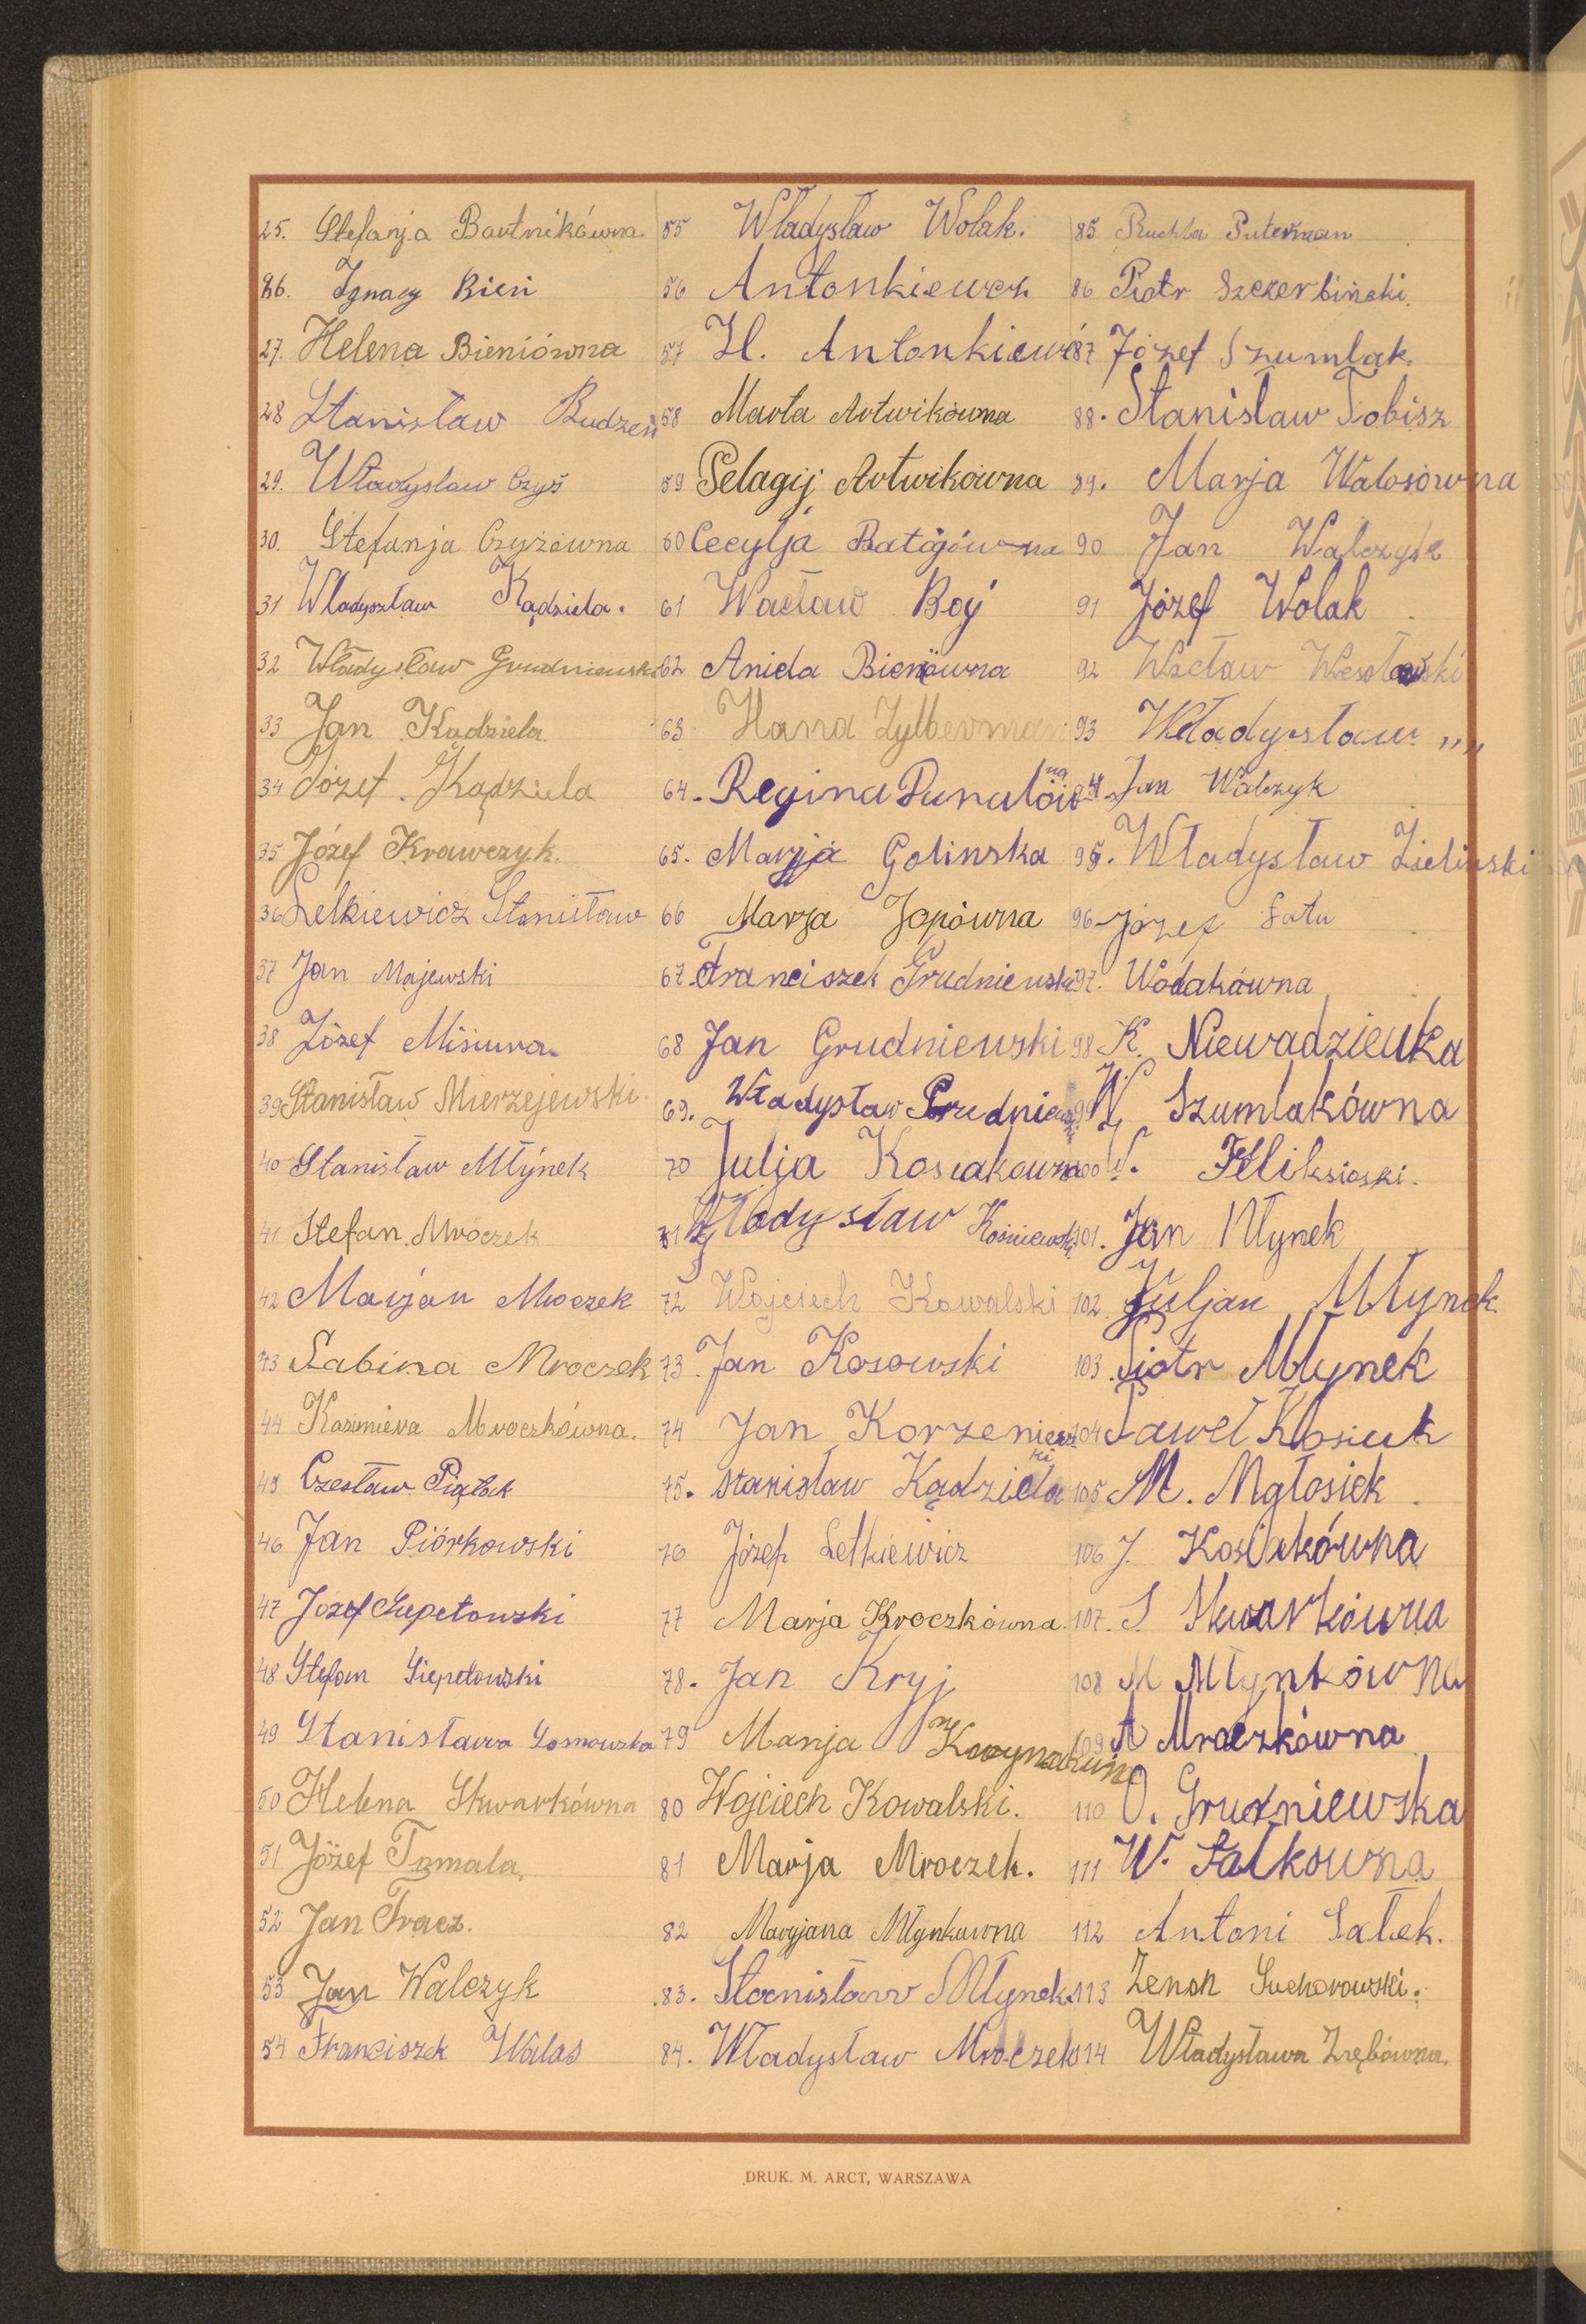 25. Stefanja Bartnikówna.
26. Ignacy Bień
27. Helena Bieniówna
28 Stanisław Budzeń
29. Władysław Czyż
30. Stefanja Czyżówna
31 Władysztaw Kądziela.
32 Władysław Grudniewski
33 Jan Kądziela
34 Józef Kądziela
35 Józef Krawczyk.
36 Lelkiewicz Stanisław
37 Jan Majewski
38 Józef Misiura.
39 Stanisław Mierzejewski.
40 Stanisław Młýnek
41 Stefan Mroczek
42 Marjan Mroczek
43 Sabina Mroczek
44 Kazimiera Mroczkówna.
45 Czesław Piątek
46 Jan Piórkowski
47 Józef Siepetowski
48 Stefan Siepetowski
49 Stanisława Sosnowska
50 Helena Skwarkówna
51 Józef Tomala.
52 Jan Tracz.
53 Jan Walczyk
54 Franciszek Walas
55 Władysław Wolak.
56 Antonkiewcz
57 H. Antonkiewi
58 Marta Artwikówna
59 Pelagij Artwikówna
60 Cecylja Batogówna
61 Wacław Boý
62 Aniela Bieniówna
63 Hana Zylberman
64. Regina Dunalówna
65. Maryja Golinska
66 Marja Jopówna
67. Franciszek Grudniewski
68 Jan Grudniewski
69. Władysław Grudniewski
70 Julja Kosiakowna
71 Władysław Kośniewski
72 Wojciech Kowalski
73. Jan Kosowski
74 Jan Korzeniewski
75. Stanisław Kądziela
76 Józef Letkiewicz
77 Marja Kroczkówna.
78. Jan Kryj
79 Marja
80 Wojciech Kowalski.
81 Marja Mroczek.
82 Maryjana Młynkuwna
83. Stanisław Młynek
84. Władysław Mroczek
85 Ruchla Puterman
86 Piotr Szczerbiński.
87 Józef Szumlak.
88. Stanisław Tobisz
89. Marja Walosówna
90 Jan Walczyk
91 Józef Wolak
92 Wacław Wesołowski
93 Władysław „„
94. Jan Walczyk
95. Władysław Zieliński
96 Józef Łata
97. Wódakówna
98 K. Niewadziulka
99 W. Szumlakówna
100 W. Feliksiaski.
101. Jan Młynek
102. Juljan Młynek
103. Piotr Młynek
104 Paweł Kłosiuk
105 M. Małosiek
106 J. Kosiakówna
107. S. Skwarkówna
108 M Młynkówna
109 A Mroczkówna
110 O. Grudniewska
111 W. Sałkowna
112 Antoni Sałek.
113 Zenon Suchorowski.
114 Władysława Zrębówna.
DRUK. M. ARCT, WARSZAWA